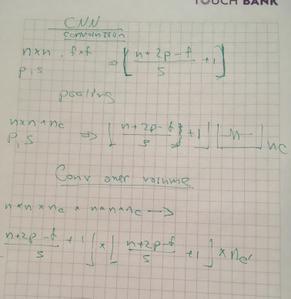 TOUCH BANK
CNN
convolution
n×n , f×f ⇒ [ n+2p-f / s + 1 ]
p, s
pooling
n×n×nc ⇒ [ n+2p-f / s + 1 ] nc
p, s
Conv over volume
n×n×nc × n×n×nc →
n+2p-f / s + 1 ] × [ n+2p-f / s + 1 ] × nc'